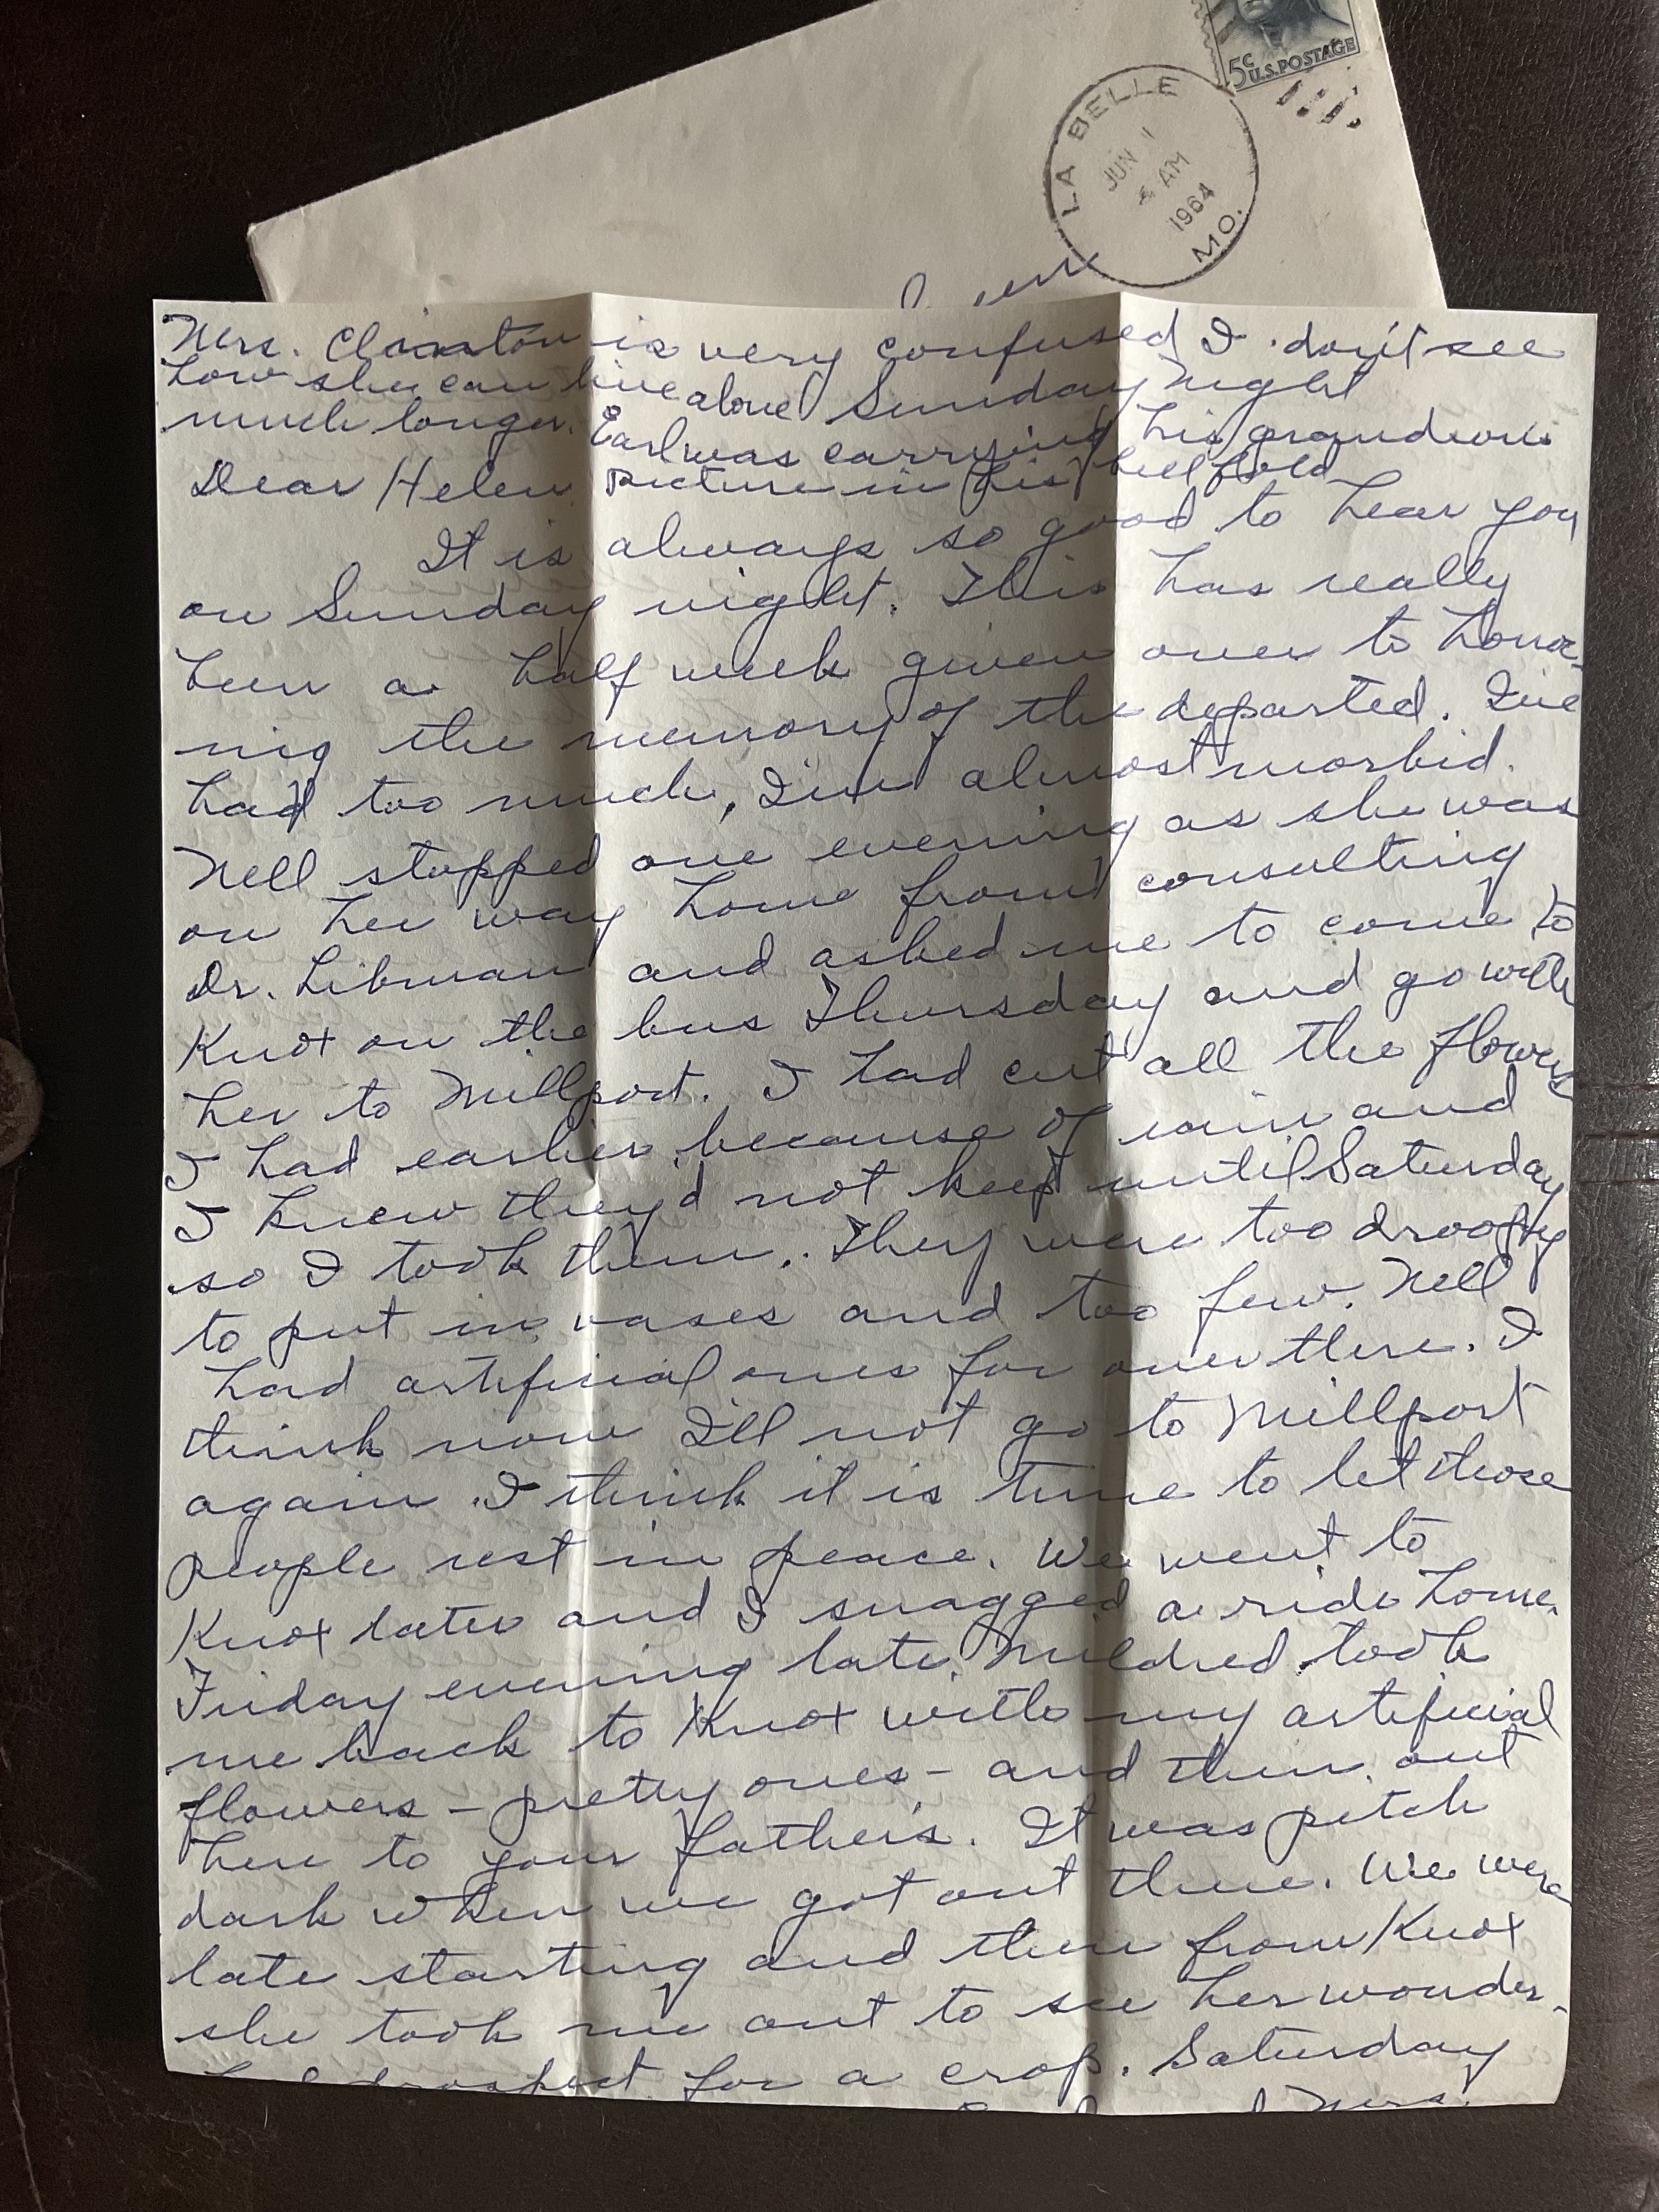 5c U.S. POSTAGE
LA BELLE
JUN 1
AM
1964
MO.
Mrs. Clinton is very confused I don't see
how she can live alone Sunday Night
much longer. Earl was carrying his grandson's
Dear Helen, picture in his bill fold
It is always so good to hear you
on Sunday night. This has really
been a half week given over to hono-
ring the memory of the departed. I've
had too much, I'm almost morbid.
Nell stopped one evening as she was
on her way home from consulting
Dr. Libman and asked me to come to
Knox on the bus Thursday and go with
her to Millport. I had cut all the flowers
I had earlier, because of rain and
I knew they'd not keep until Saturday
so I took them. They were too droopy
to put in vases and too few. Nell
had artificial ones for over there. I
think now I'll not go to Millport
again. I think it is time to let those
people rest in peace. We went to
Knox later and I snagged a ride home.
Friday evening late, Mildred took
me back to Knox with my artificial
flowers – pretty ones – and then out
here to your father's. It was pitch
dark when we got out there. We were
late starting and then from Knox
she took me out to see her wonder-
ful prospect for a crop. Saturday
Mrs.